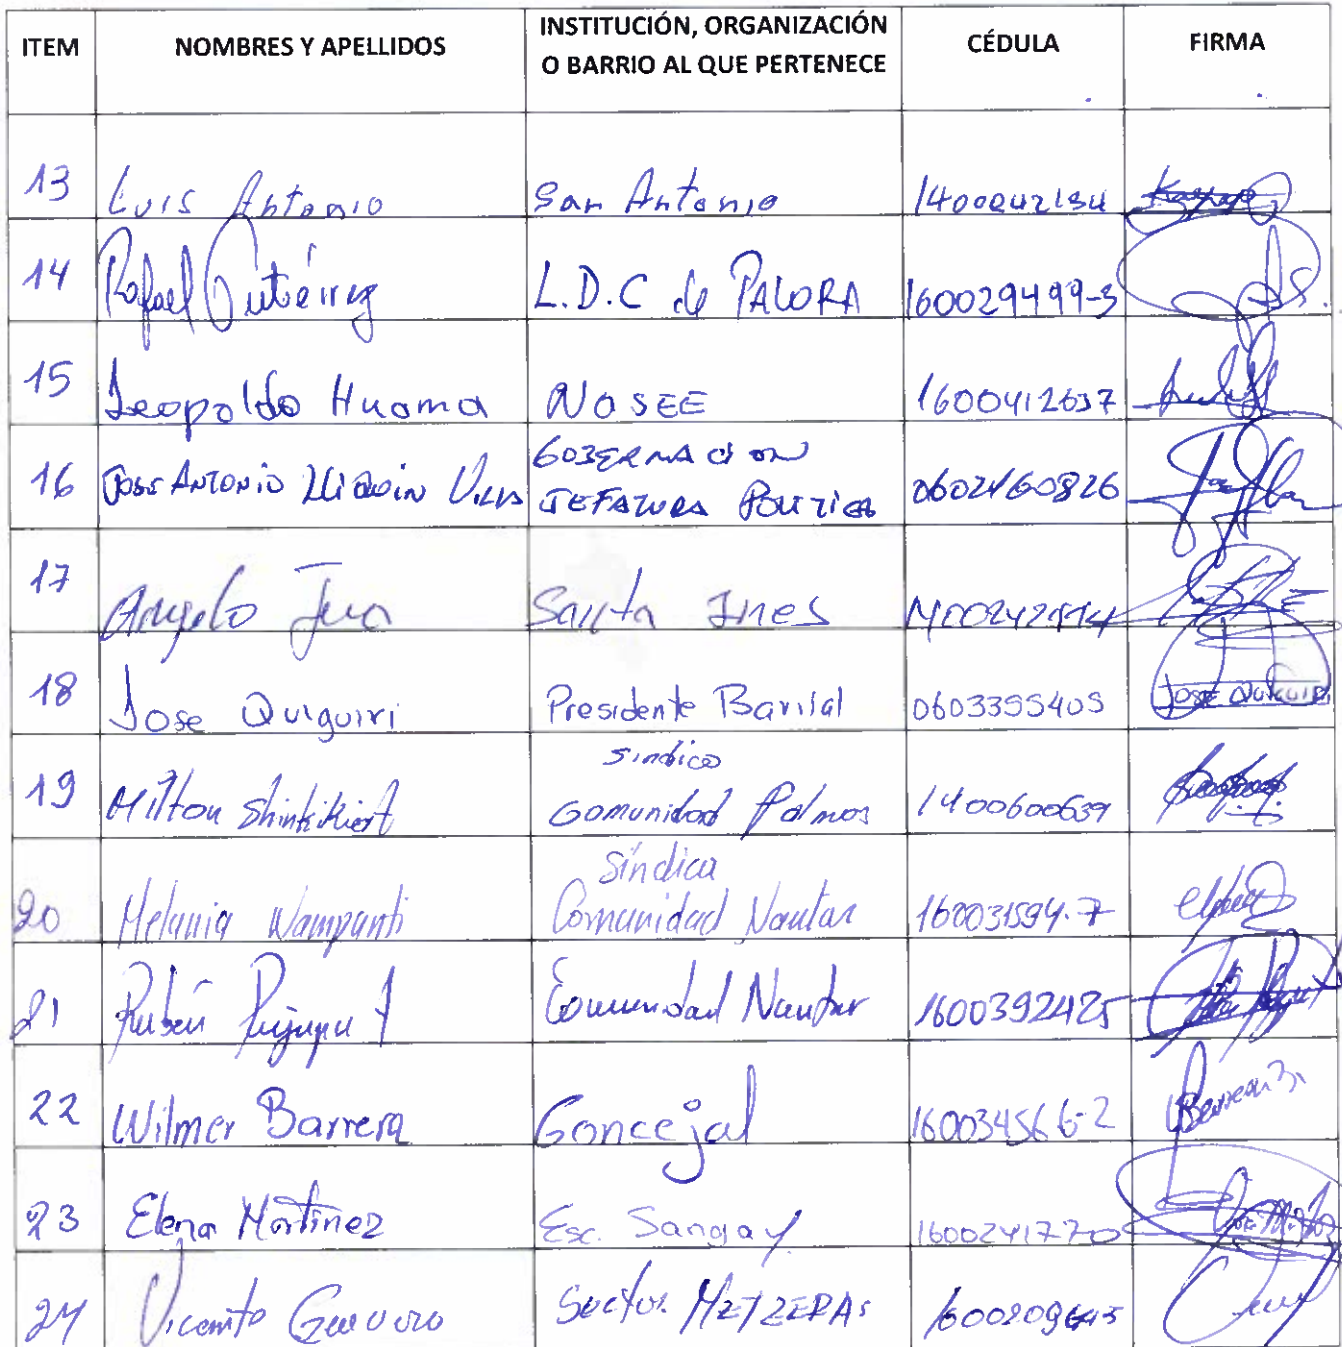 ITEM NOMBRES Y APELLIDOS INSTITUCIÓN, ORGANIZACIÓN O BARRIO AL QUE PERTENECE CÉDULA FIRMA
13 Luis Antonio San Antonio
14 Rafael Gutiérrez L.D.C de PALORA 160029499-3
15 Leopoldo Huama NOSEE 1600412637
16 JOSE ANTONIO GOBERNACION JEFATURA POLITICA 0602460826
17 Angelo Santa Ines
18 Jose Quiguiri Presidente Barrial 0603395405 JOSE QUIGUIRI
19 Milton Shinkikiat Sindico Comunidad Palmas 1400600639
20 Melania Wampanti Síndica Comunidad Nantar 160031594-7
21 Rubén Comunidad Nantar 1600392425
22 Wilmer Barrera Concejal 160034566-2
23 Elena Martinez Esc. Sangay 1600241770
24 Vicente Guevara Sector 1600209645